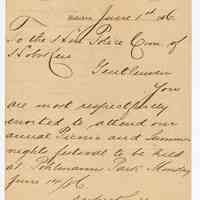 June 1st 06.
To the Hon Police Com. of
Hoboken
Gentlemen
You
are most respectfully
invited to attend our
annual Picnic and Summer
nights festival to be held
at Pohlmanns Park Monday
June 14/06